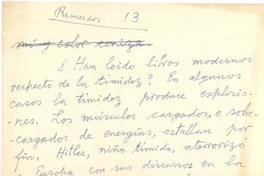 Recuerdos 13
muy color ceniza
¿Han leído libros modernos
respecto de la timidez? En algunos
casos la timidez produce explosio-
nes. Los músculos cargados, o sobre-
cargados de energías, estallan por
fin. Hitler, niño tímido, aterrorizó
a Europa con sus discursos en la